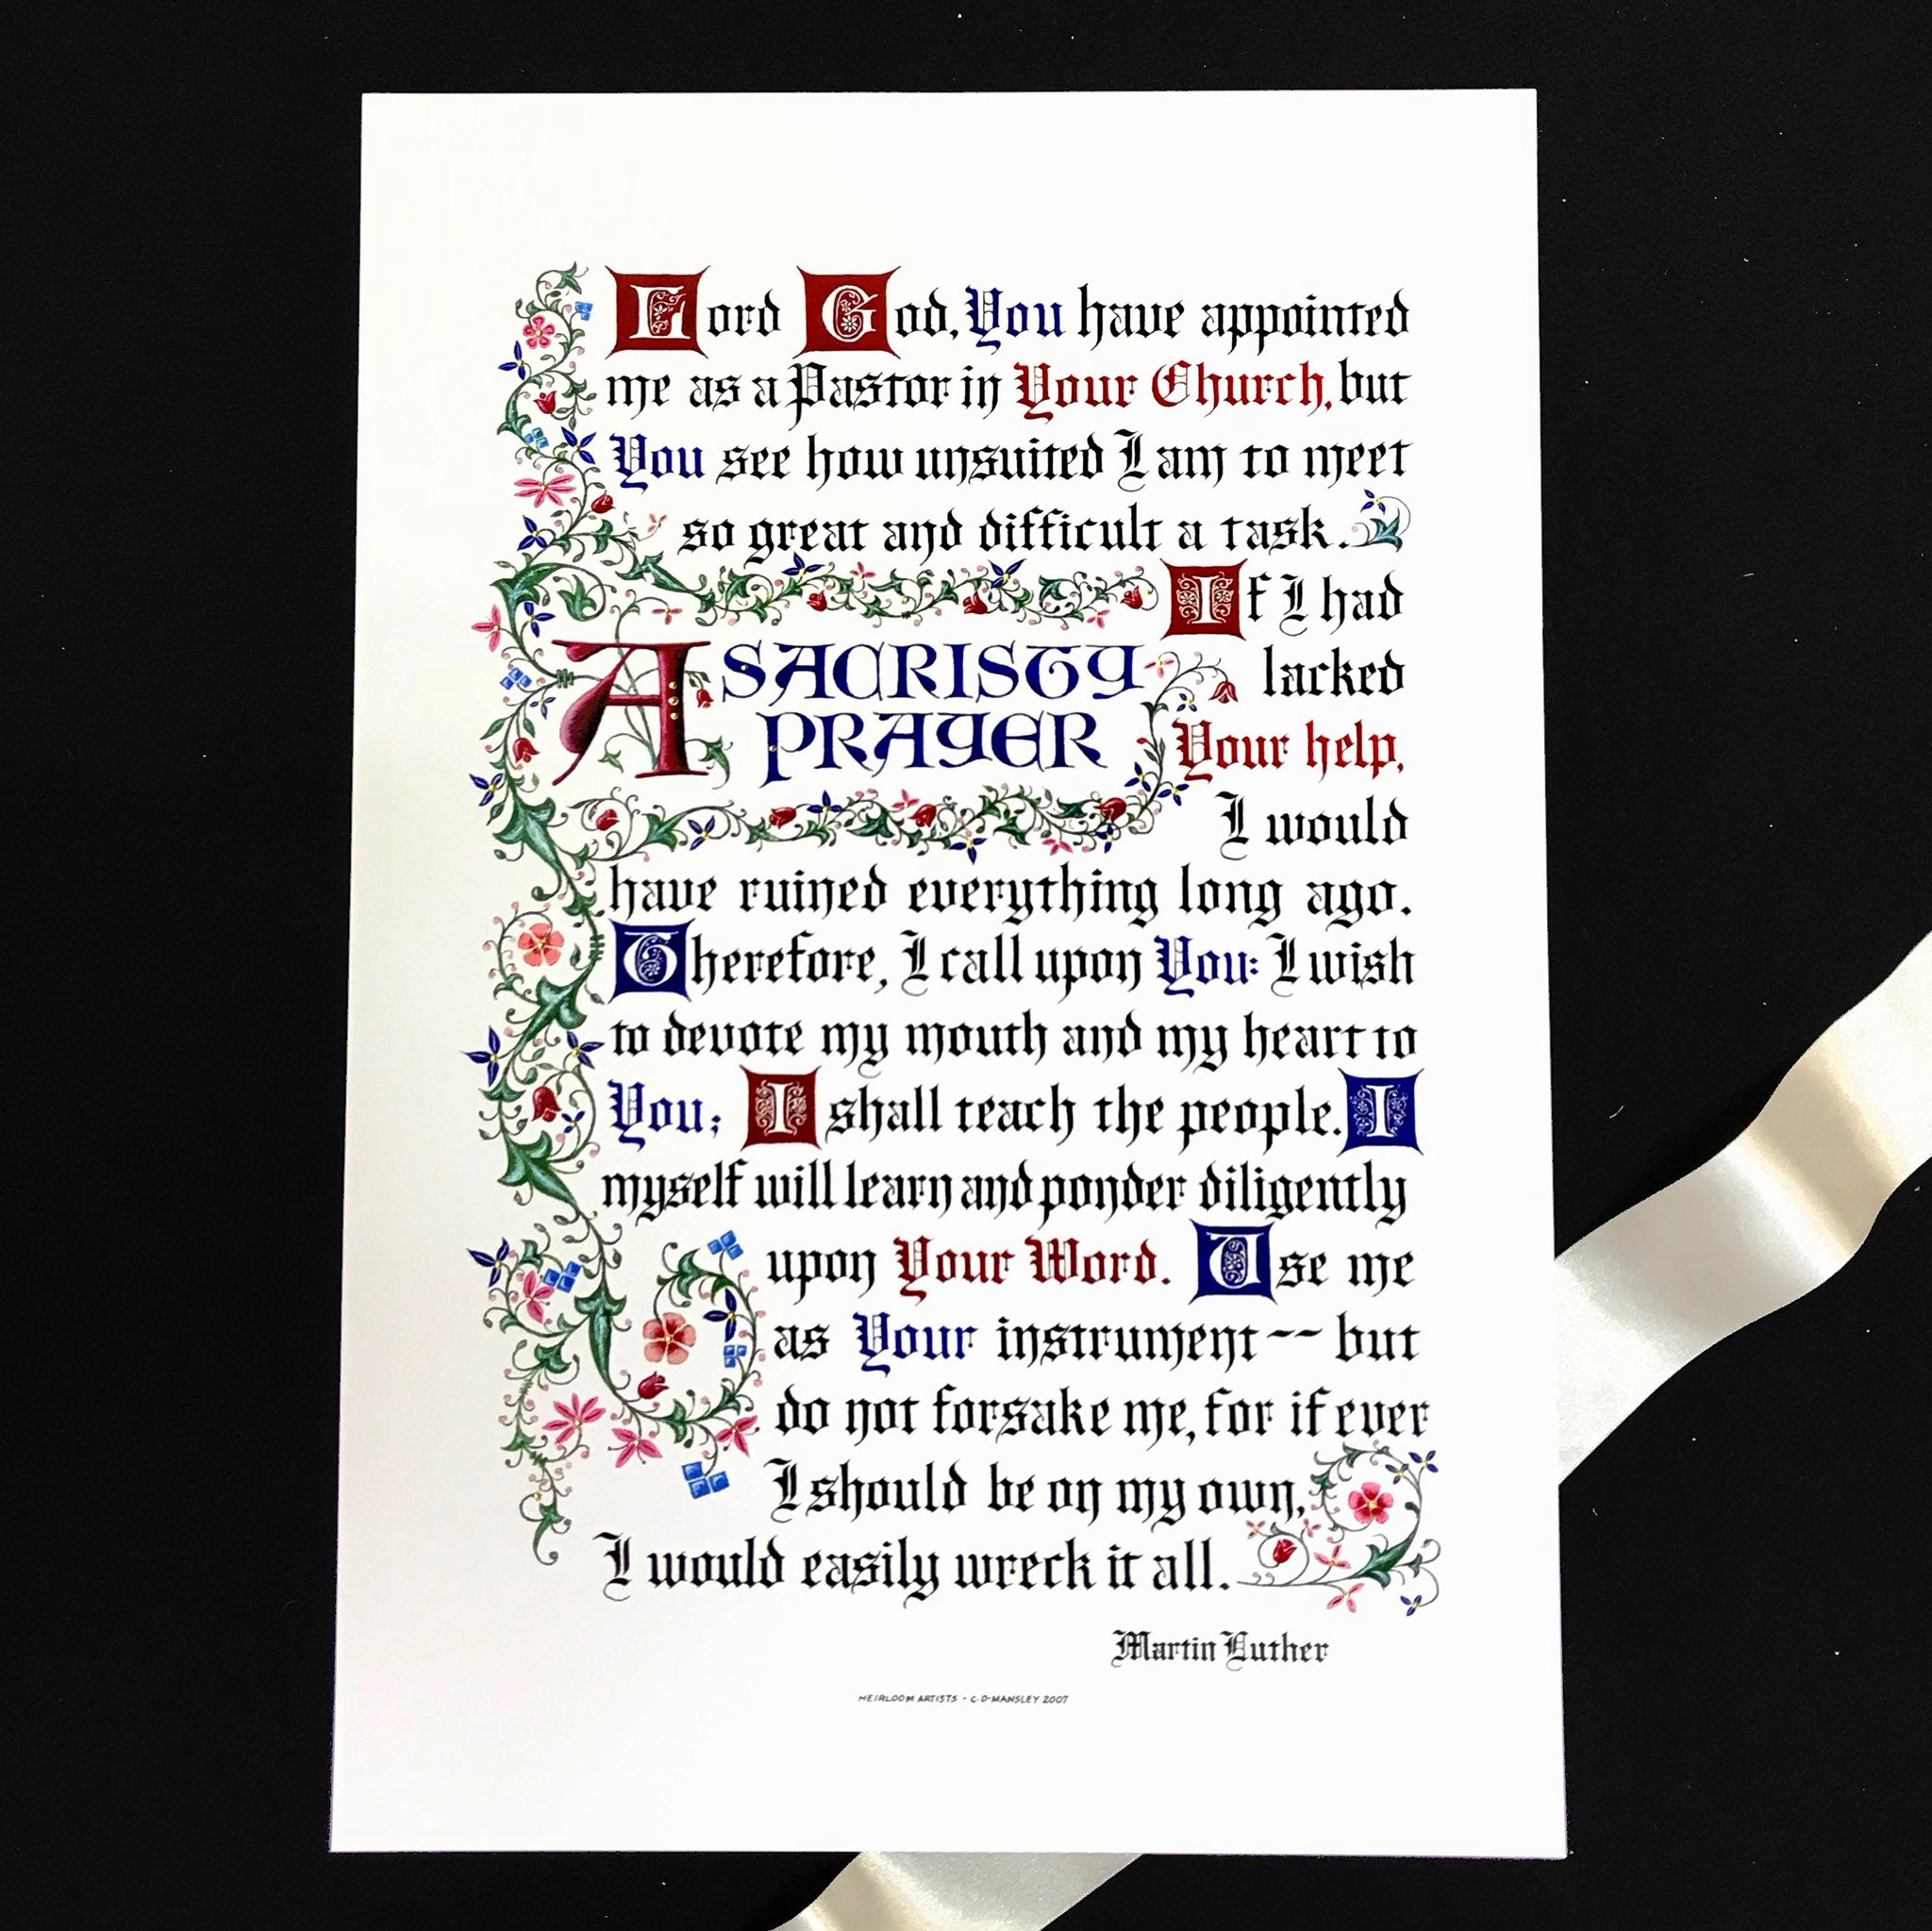 Lord God, You have appointed
me as a Pastor in Your Church, but
You see how unsuited I am to meet
so great and difficult a task.
A SACRISTY
PRAYER
If I had
lacked
Your help,
I would
have ruined everything long ago.
Therefore, I call upon You: I wish
to devote my mouth and my heart to
You; I shall teach the people. I
myself will learn and ponder diligently
upon Your Word. Use me
as Your instrument -- but
do not forsake me, for if ever
I should be on my own,
I would easily wreck it all.
Martin Luther
HEIRLOOM ARTISTS - C·D·MANSLEY 2007